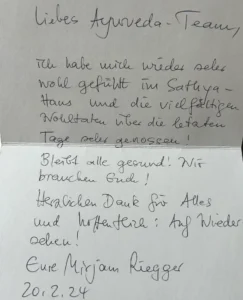 Liebes Ayurveda-Team,
ich habe mich wieder sehr
wohl gefühlt im Sathya-
Haus und die vielfältigen
Wohltaten über die letzten
Tage sehr genossen!
Bleibt alle gesund! Wir
brauchen Euch!
Herzlichen Dank für Alles
und hoffentlich: Auf Wieder
sehen!
Eure Mirjam Riegger
20.2.24